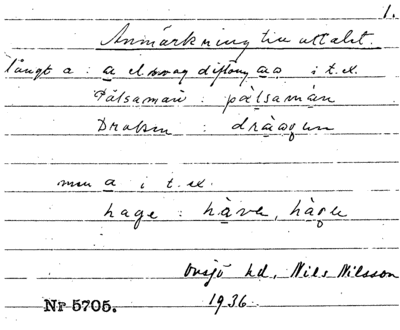 1.
Anmärkning till uttalet.
långt a : a el. svag diftong aa i t. ex.
Pålsaman : pålsamån
Draken : dråaqen
men a i t. ex.
hage : håve, håge
Ovsjö hd, Nils Nilsson
Nr 5705. 1936.